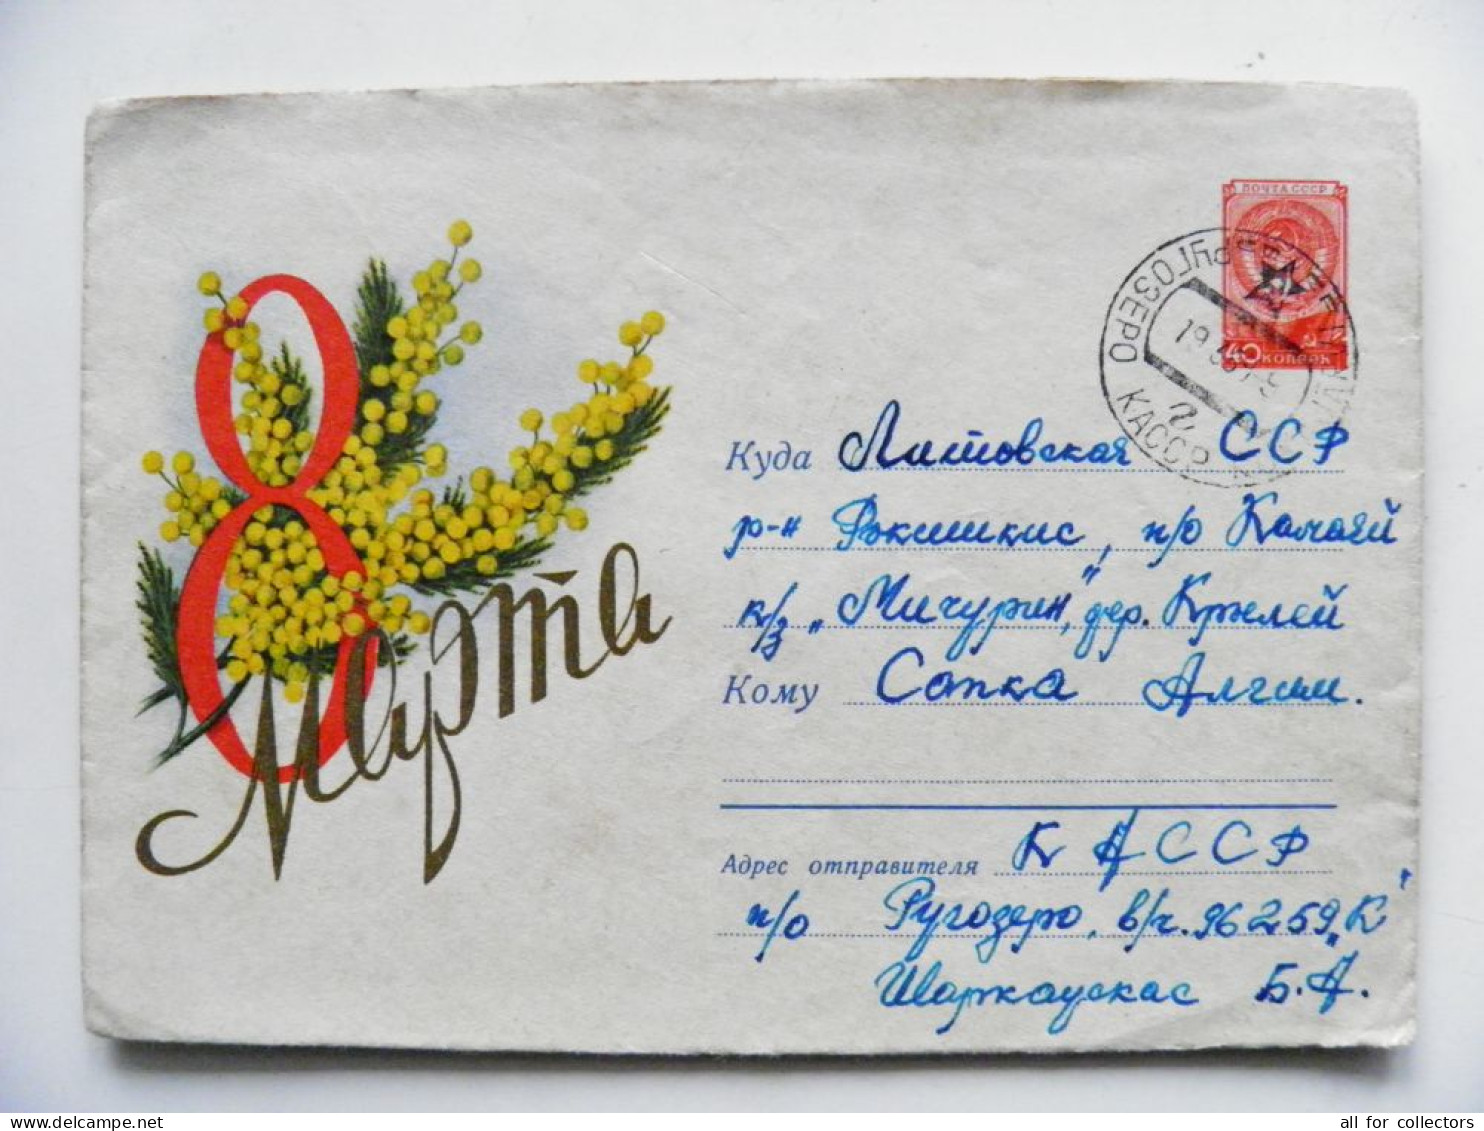 8 Марта
ПОЧТА СССР
40 КОПЕЕК
РУГОЗЕРО КАССР
19
Куда Литовская ССР
р-н Рокишкис, п/о Камаяй
к/з „Мичурин", дер.
Кому Сапка
Адрес отправителя К А С С Р
п/о Ругозеро, в/ч. 96259 „К"
Шаркаускас Б. А.
all for collectors